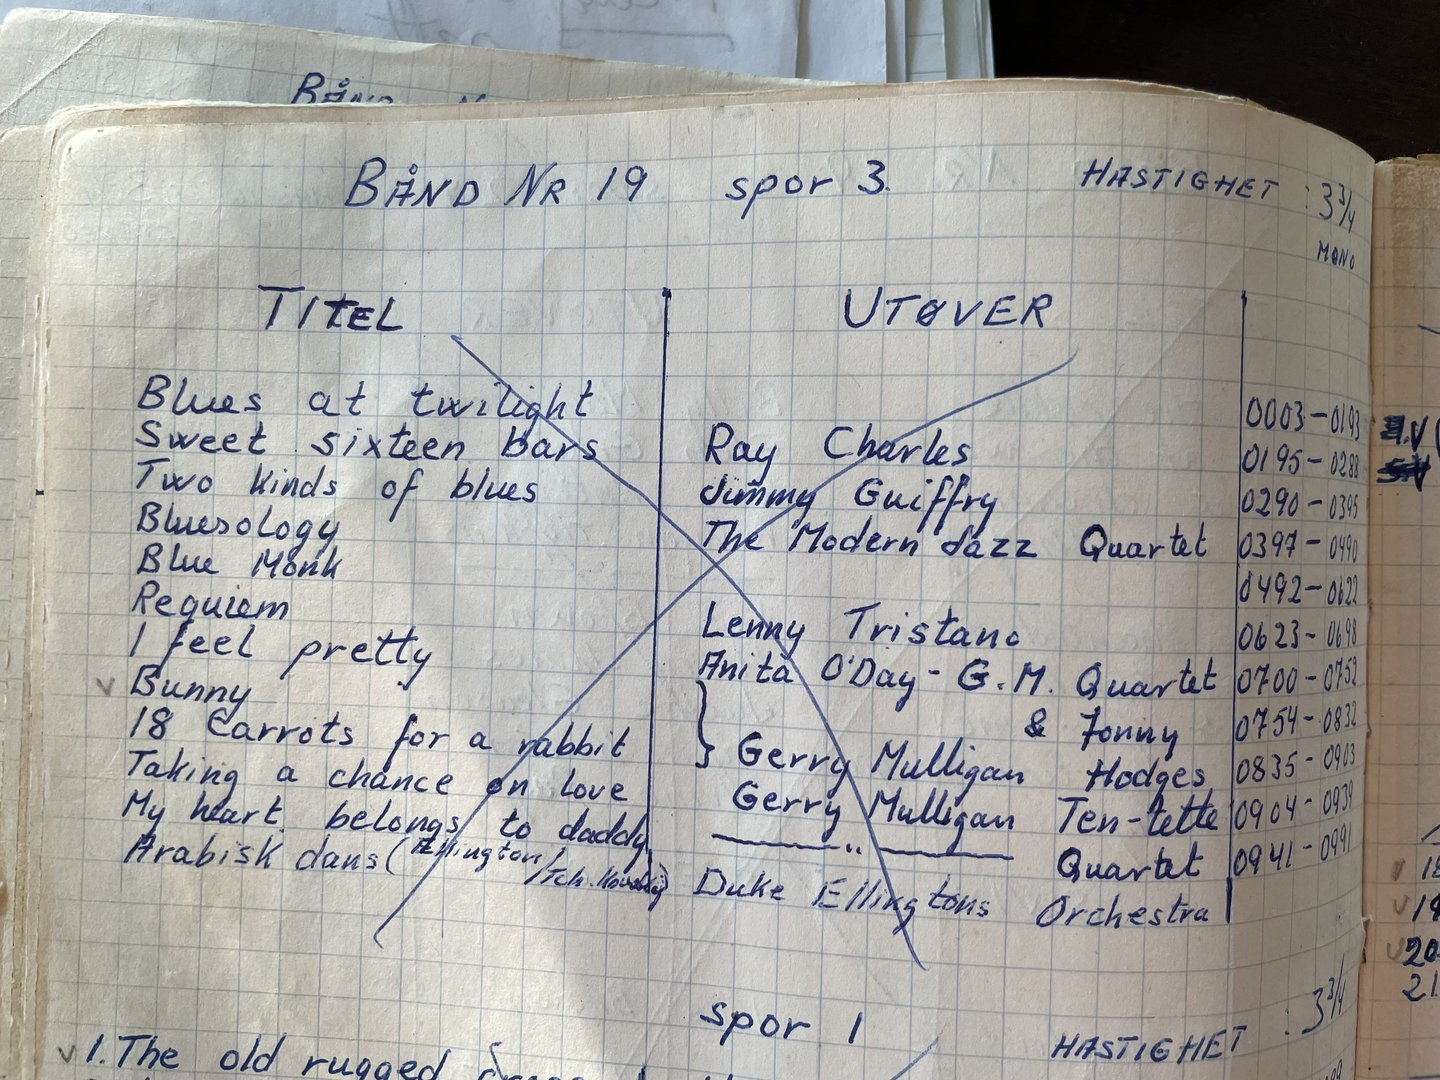 BÅND NR 19 spor 3. HASTIGHET : 3 3/4
MONO
TITEL UTØVER
Blues at twilight 0003-0193
Sweet sixteen bars Ray Charles 0195-0288
Two kinds of blues Jimmy Guiffry 0290-0395
Bluesology The Modern Jazz Quartet 0397-0490
Blue Monk 0492-0622
Requiem Lenny Tristano 0623-0698
I feel pretty Anita O'Day - G.M. Quartet 0700-0752
v Bunny & Jonny 0754-0832
18 Carrots for a rabbit } Gerry Mulligan Hodges 0835-0903
Taking a chance on love Gerry Mulligan Ten-tette 0904-0939
My heart belongs to daddy —— " —— Quartet 0941-0991
Arabisk dans (Ellington/ Duke Ellingtons Orchestra
spor 1
HASTIGHET : 3 3/4
v 1. The old rugged
BÅND
18
v 19
v 20
21